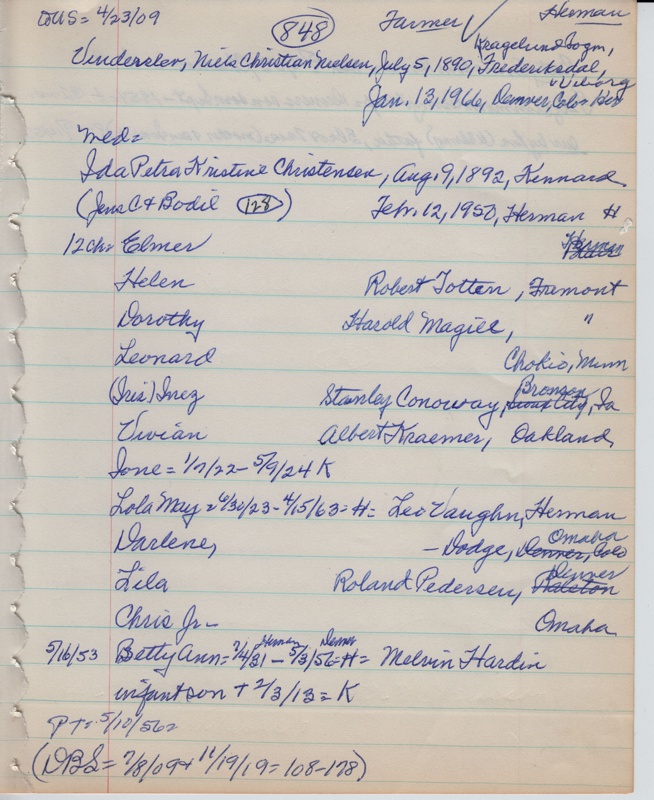 TO US = 4/23/09 (848) Farmer ✓ Herman
Kragelund Sogn,
Vinderslev, Niels Christian Nielsen, July 5, 1890, Frederiksdal,
Viborg
Jan. 13, 1966, Denver, Colo =
Med=
Ida Petra Kristine Christensen, Aug. 9, 1892, Kennard
(Jens C & Bodil (128)) Febr. 12, 1950, Herman H
12 ch= Elmer Herman Blair
Helen Robert Totten, Fremont
Dorothy Harold Magill, "
Leonard Chokio, Minn
Bronson
(Iris) Inez Stanley Conoway, Sioux City, Ia
Vivian Albert Kraemer, Oakland
Ione = 1/7/22 - 5/9/24 K
Lola May = 6/30/23 - 4/15/63 = H = Leo Vaughn, Herman
Omaha
Darlene, - Dodge, Denver, Colo
Denver
Lila Roland Pedersen, Ralston
Chris Jr - Omaha
Herman Denver
5/16/53 Betty Ann = 7/4/31 - 5/3/56 = H = Melvin Hardin
infant son + 2/3/13 = K
PT = 5/10/56 =
(DBS = 7/8/09 + 11/19/19 = 108-178)